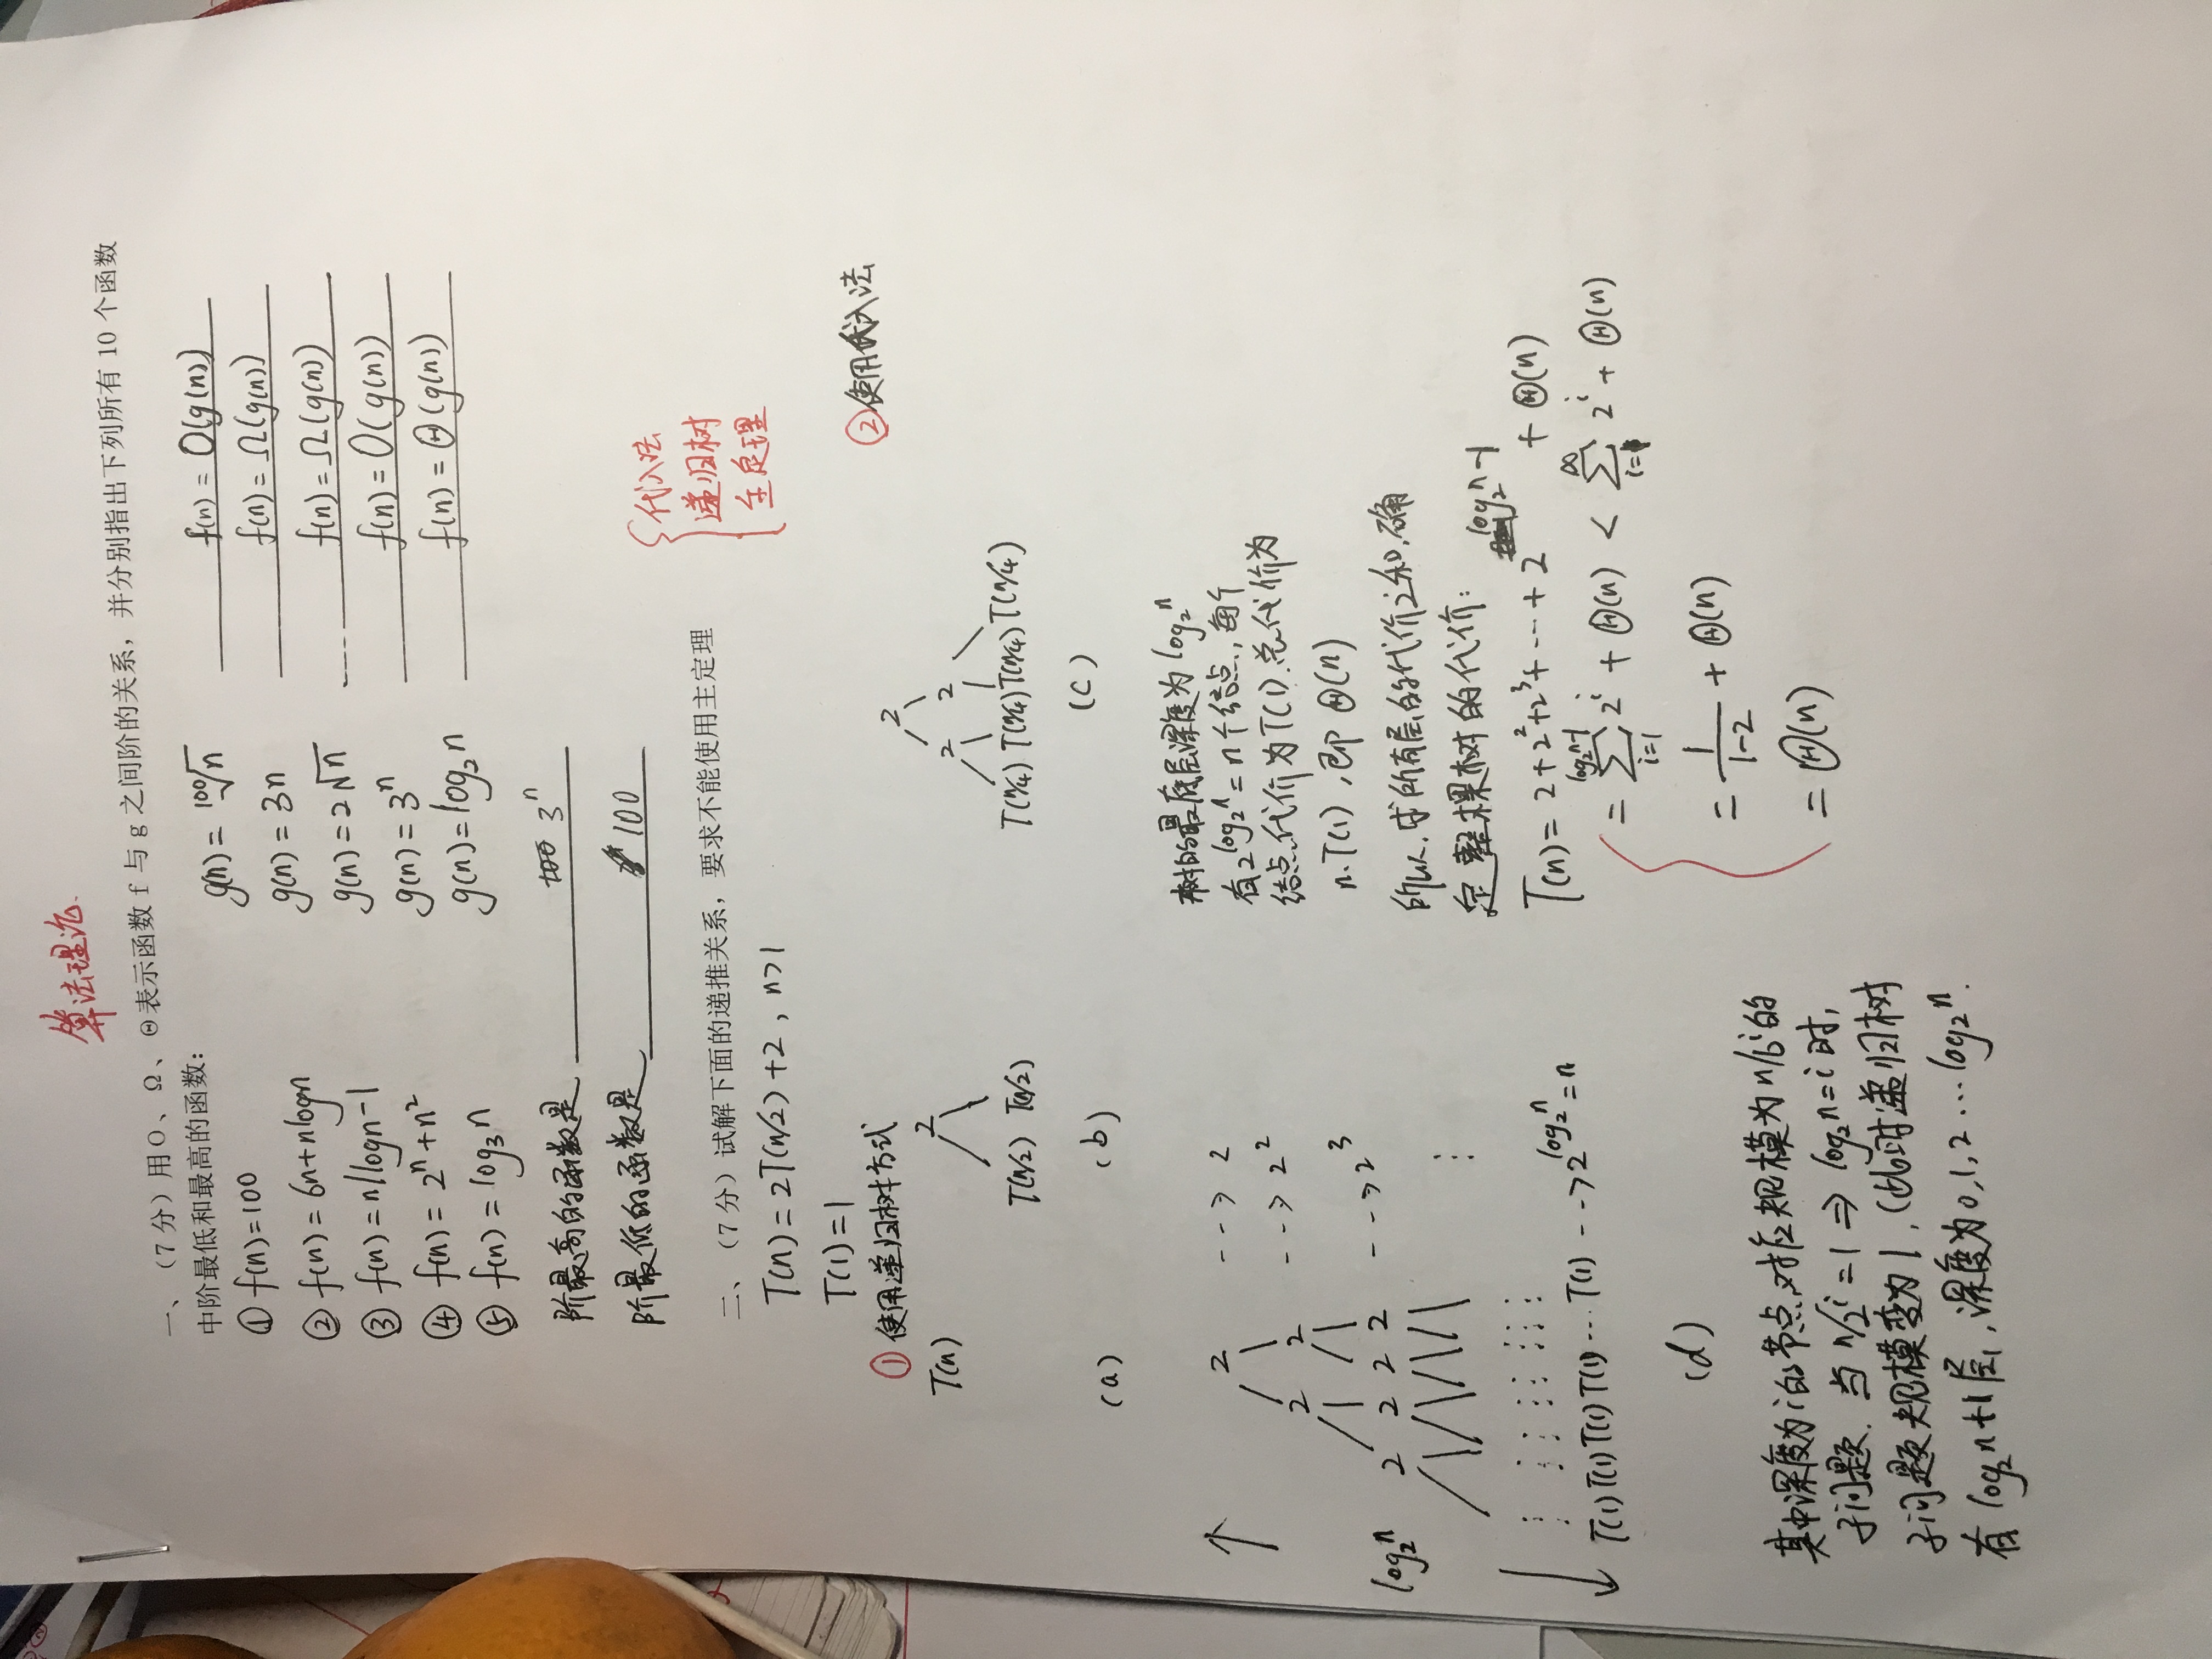 算法理论.
一、（7分）用O、Ω、Θ表示函数 f 与 g 之间阶的关系，并分别指出下列所有 10 个函数
中阶最低和最高的函数：
① f(n)=100 g(n) = ¹⁰⁰√n f(n) = O(g(n))
② f(n) = 6n+nlogn g(n) = 3n f(n) = Ω(g(n))
③ f(n) = n/logn-1 g(n) = 2√n f(n) = Ω(g(n))
④ f(n) = 2^n+n^2 g(n) = 3^n f(n) = O(g(n))
⑤ f(n) = log₃n g(n) = log₂n f(n) = Θ(g(n))
阶最高的函数是 100 3^n
阶最低的函数是 100
二、（7分）试解下面的递推关系，要求不能使用主定理
代入法
递归树
主定理
T(n) = 2T(n/2) +2 , n>1
T(1) = 1
① 使用递归树方式
② 使用代入法
T(n)
(a)
2
T(n/2) T(n/2)
(b)
2
2 2
T(n/4) T(n/4) T(n/4) T(n/4)
(c)
2 --> 2
2 2 --> 2^2
2 2 2 2 --> 2^3
log₂n
T(1) T(1) T(1) T(1) ... T(1) --> 2^(log₂n) = n
(d)
其中深度为i的节点对应规模为n/b^i的
子问题. 当 n/2^i = 1 ⇒ log₂n = i 时,
子问题规模变为1, (此时递归树
有 log₂n+1 层, 深度为0,1,2 ... log₂n.
树的最底层深度为 log₂n
有2^(log₂n) = n个结点, 每个
结点代价为T(1).总代价为
n.T(1) ,即 Θ(n)
所以. 求所有层的代价之和,确
定整棵树的代价:
T(n) = 2+2^2+2^3+ ... + 2^(log₂n-1) + Θ(n)
= ∑_(i=1)^(log₂n-1) 2^i + Θ(n) < ∑_(i=1)^∞ 2^i + Θ(n)
= 1/(1-2) + Θ(n)
= Θ(n)